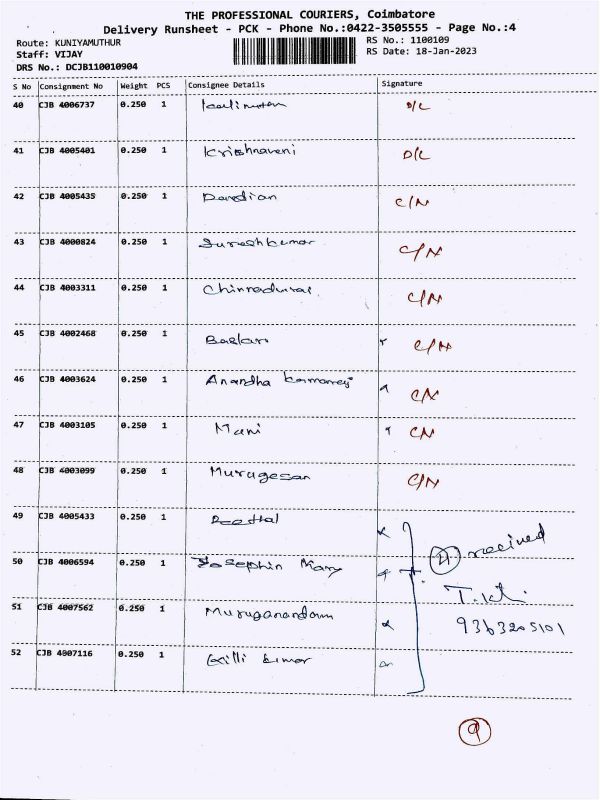 THE PROFESSIONAL COURIERS, Coimbatore
Delivery Runsheet - PCK - Phone No.:0422-3505555 - Page No.:4
Route: KUNIYAMUTHUR RS No.: 1100109
Staff: VIJAY RS Date: 18-Jan-2023
DRS No.: DCJB110010904
S No Consignment No Weight PCS Consignee Details Signature
40 CJB 4006737 0.250 1 D/L
41 CJB 4005401 0.250 1 Krishnaveni D/L
42 CJB 4005435 0.250 1 C/N
43 CJB 4000824 0.250 1 Sureshkumar C/N
44 CJB 4003311 0.250 1 Chinnadurai C/N
45 CJB 4002468 0.250 1 C/N
46 CJB 4003624 0.250 1 Anandha C/N
47 CJB 4003105 0.250 1 Mani C/N
48 CJB 4003099 0.250 1 Murugesan C/N
49 CJB 4005433 0.250 1
50 CJB 4006594 0.250 1 Josephin Mary 4 received
51 CJB 4007562 0.250 1 Muruganandam 9363205101
52 CJB 4007116 0.250 1 kumar
9